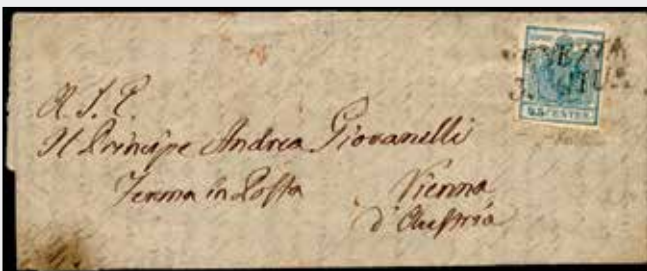 VENEZIA
45 CENTES
A. S. E.
Il Principe Andrea Giovanelli
Ferma in Posta Vienna
d'Austria